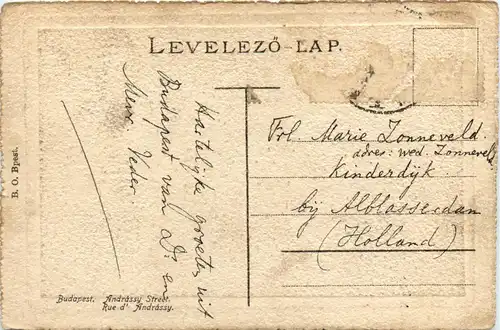 LEVELEZŐ-LAP.
Hartelijke groeten uit
Budapest van Dr en
Mevr. Veder
Frl. Marie Zonneveld.
adres: wed. Zonneveld
Kinderdijk.
bij Alblasserdam
(Holland)
B. O. Bpest.
Budapest. Andrássy Street.
Rue d' Andrássy.